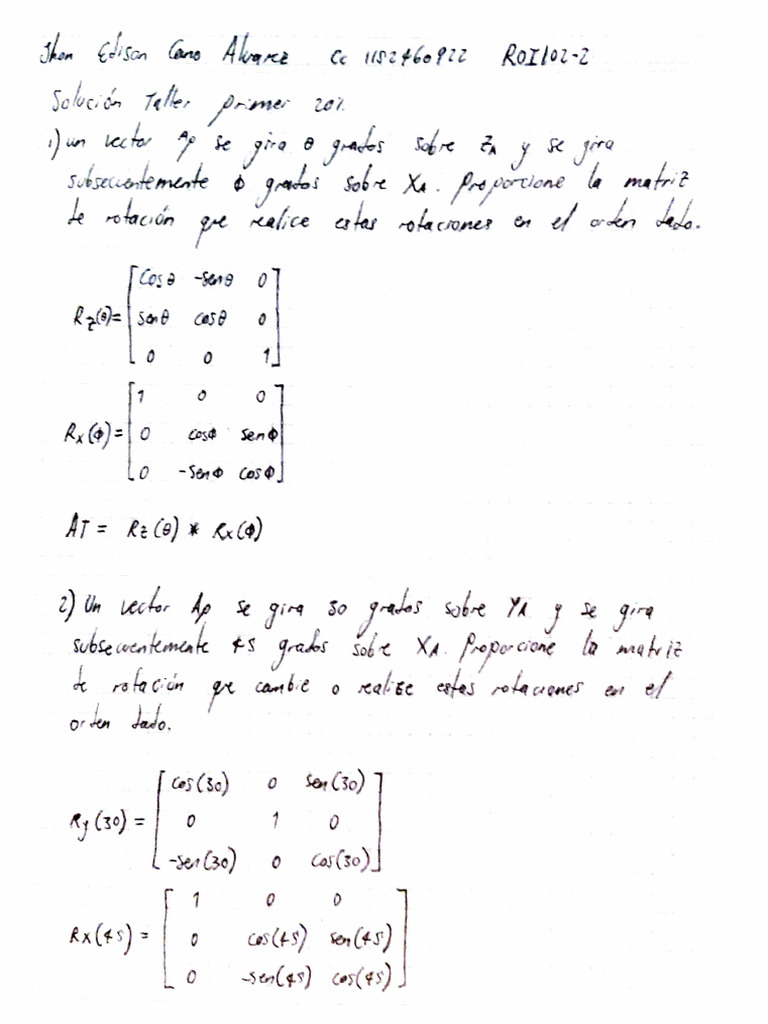 Jhon Edison Cano Alvarez Cc 1152460922 ROI102-2
Solución Taller primer 20%
1) un vector Ap se gira θ grados sobre ZA y se gira
subsecuentemente Φ grados sobre XA. Proporcione la matriz
de rotación que realice estas rotaciones en el orden dado.
Rz(θ)= [cosθ -senθ 0
senθ cosθ 0
0 0 1]
Rx(Φ)= [1 0 0
0 cosΦ senΦ
0 -senΦ cosΦ]
AT = Rz(θ) * Rx(Φ)
2) Un vector Ap se gira 30 grados sobre YA y se gira
subsecuentemente 45 grados sobre XA. Proporcione la matriz
de rotación que cambie o realice estas rotaciones en el
orden dado.
Ry(30) = [cos(30) 0 sen(30)
0 1 0
-sen(30) 0 cos(30)]
Rx(45) = [1 0 0
0 cos(45) sen(45)
0 -sen(45) cos(45)]